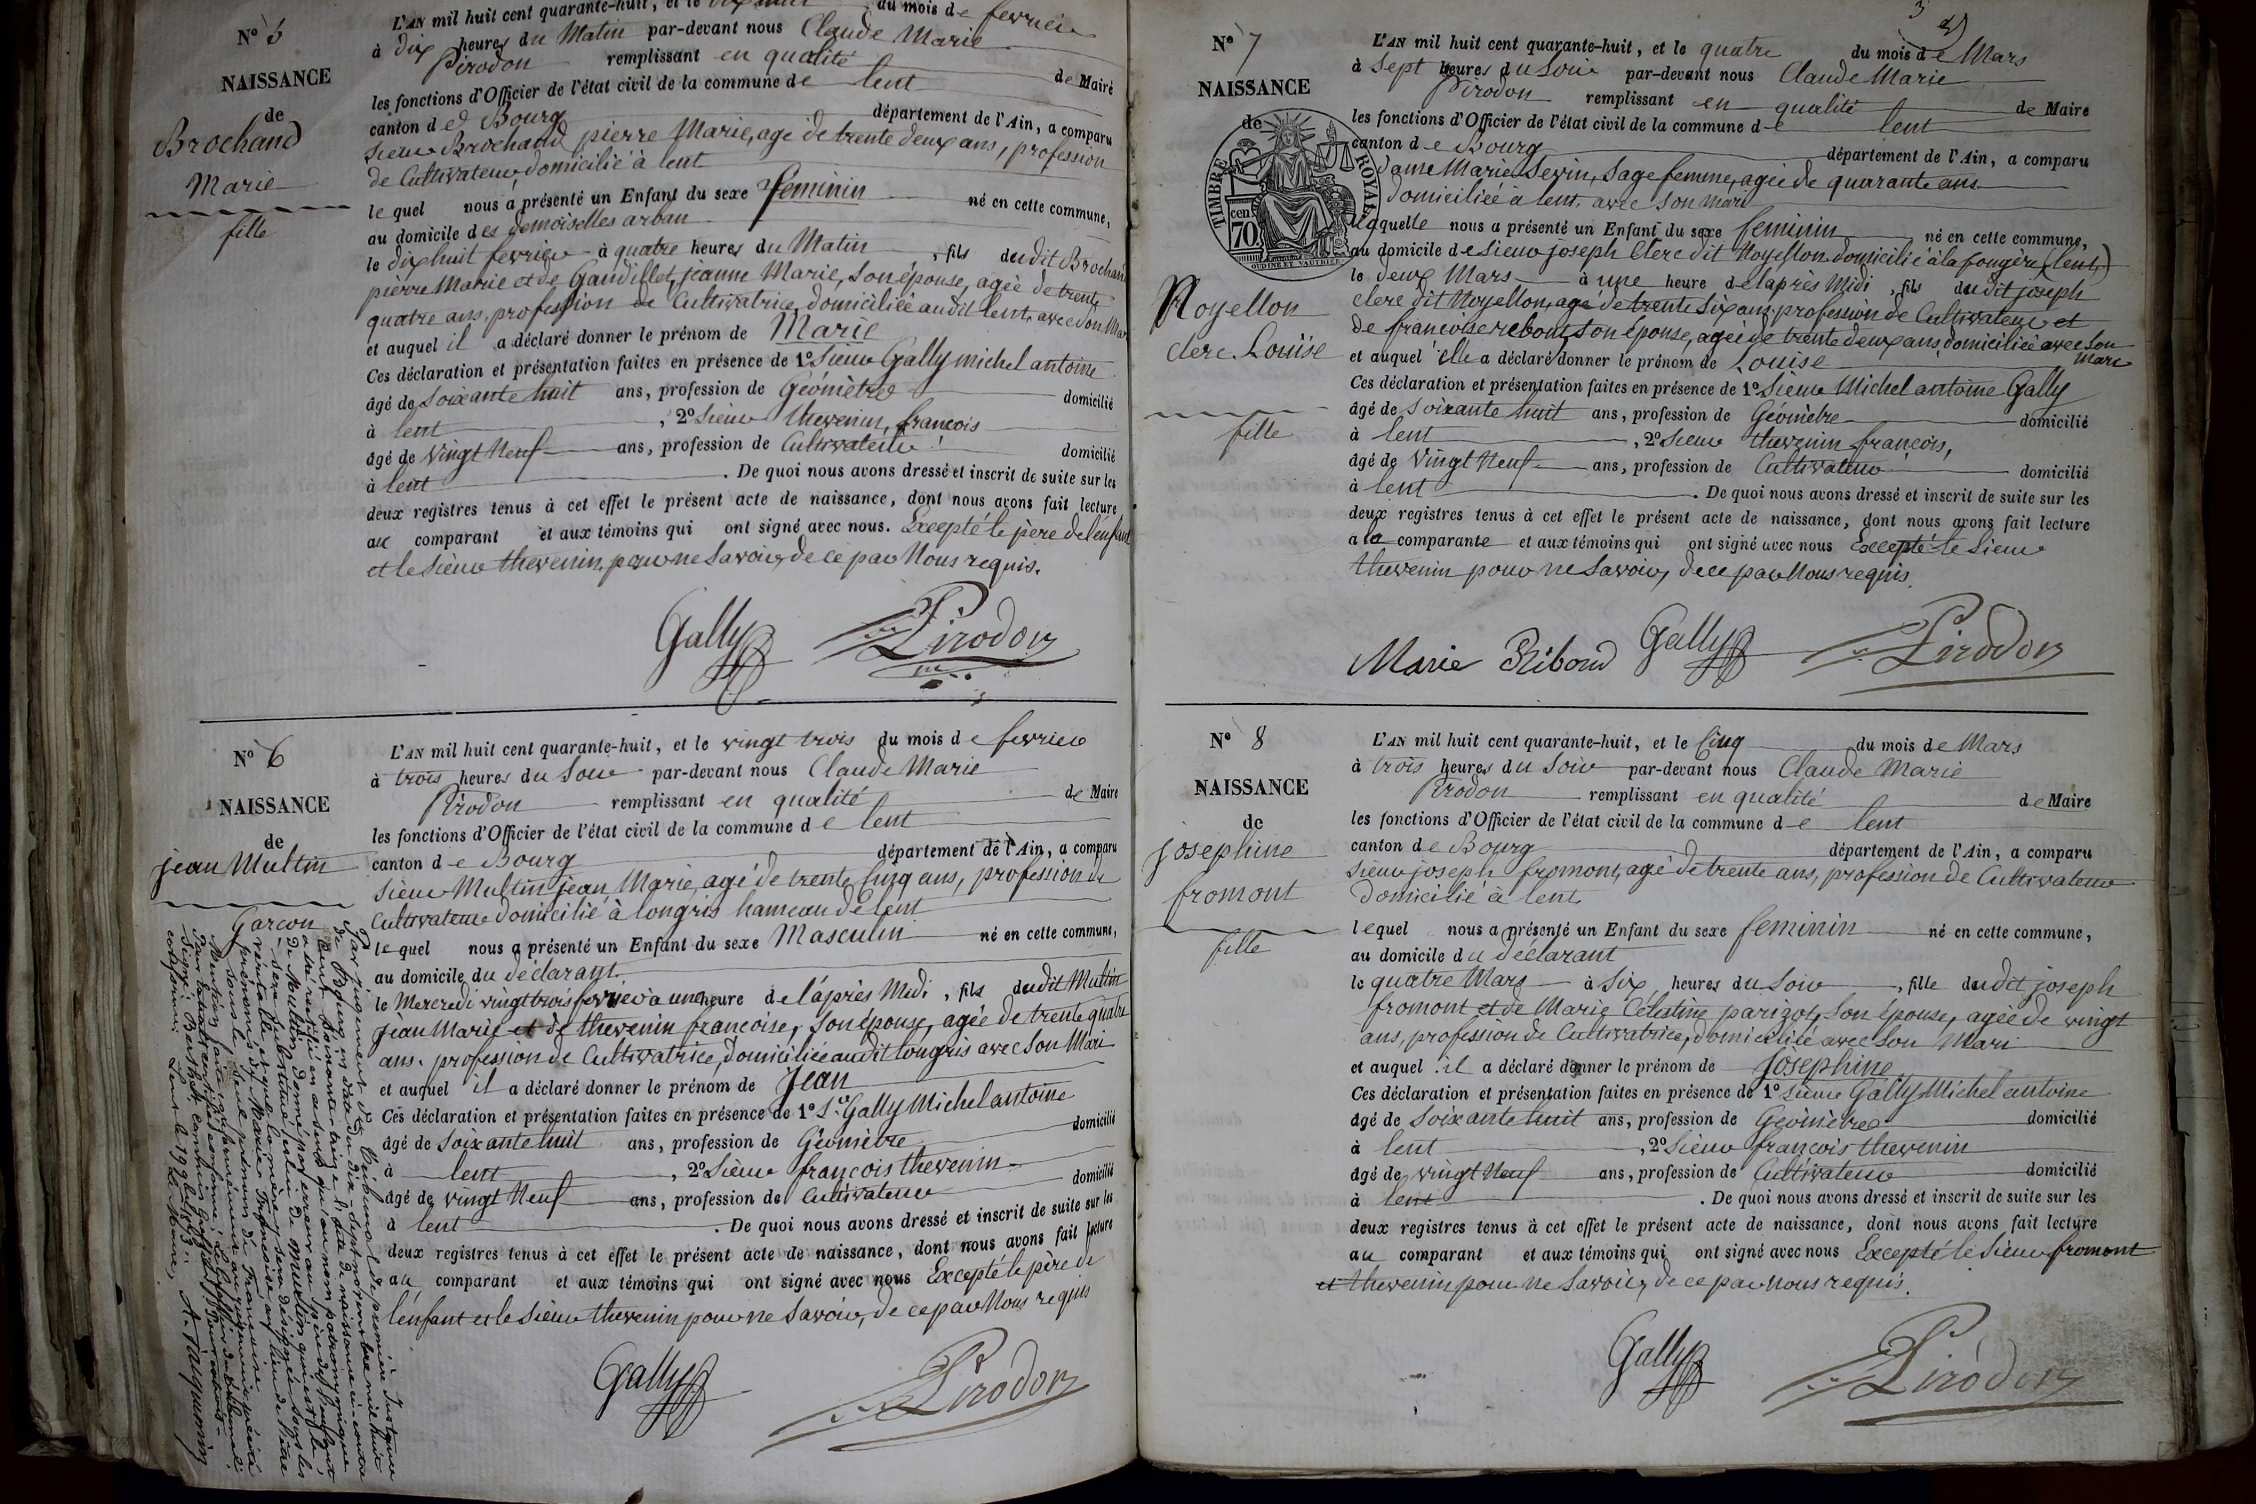 N° 5
NAISSANCE
de
Brochand
Marie
fille
L'AN mil huit cent quarante-huit, et le dix huit du mois de fevrier
à dix heures du Matin par-devant nous Claude Marie
Pirodon remplissant en qualité de Maire
les fonctions d'Officier de l'état civil de la commune de lent
canton de Bourg département de l'Ain, a comparu
Sieur Brochand pierre Marie, agé de trente deux ans, profession
de Cultivateur domicilié à lent
lequel nous a présenté un Enfant du sexe feminin né en cette commune,
au domicile des demoiselles arban
le dix huit fevrier à quatre heures du Matin, fils dudit Brochand
pierre Marie et de Gaudillet, jeanne Marie, son épouse, agée de trente
quatre ans, profession de Cultivatrice, domiciliée audit lent, avec son Mari
et auquel il a déclaré donner le prénom de Marie
Ces déclaration et présentation faites en présence de 1° Sieur Gally michel antoine
âgé de Soixante huit ans, profession de Géomètre domicilié
à lent, 2° Sieur thevenin, françois
âgé de vingt Neuf ans, profession de Cultivateur domicilié
à lent. De quoi nous avons dressé et inscrit de suite sur les
deux registres tenus à cet effet le présent acte de naissance, dont nous avons fait lecture
au comparant et aux témoins qui ont signé avec nous. Excepté le père de lenfant
et le Sieur thevenin, pour ne Savoir, de ce par Nous requis.
Gally Pirodon
N° 6
NAISSANCE
de
jean Multin
Garcon
L'AN mil huit cent quarante-huit, et le vingt trois du mois de fevrier
à trois heures du Soir par-devant nous Claude Marie
Pirodon remplissant en qualité de Maire
les fonctions d'Officier de l'état civil de la commune de lent
canton de Bourg département de l'Ain, a comparu
Sieur Multin jean Marie, agé de trente Cinq ans, profession de
Cultivateur domicilié à longris hameau de lent
lequel nous a présenté un Enfant du sexe Masculin né en cette commune,
au domicile du déclarant
le Mercredi vingt trois fevrier à une heure de l'après Midi, fils dudit Multin
jean Marie et de thevenin françoise, Son épouse, agée de trente quatre
ans. profession de Cultivatrice, domiciliée audit longris avec Son Mari
et auquel il a déclaré donner le prénom de jean
Ces déclaration et présentation faites en présence de 1° Sr Gally Michel antoine
âgé de Soixante huit ans, profession de Géomètre domicilié
à lent, 2° Sieur françois thevenin
âgé de vingt Neuf ans, profession de Cultivateur domicilié
à lent. De quoi nous avons dressé et inscrit de suite sur les
deux registres tenus à cet effet le présent acte de naissance, dont nous avons fait lecture
au comparant et aux témoins qui ont signé avec nous Excepté le père de
lénfant et le Sieur thevenin pour ne Savoir, de ce par Nous requis
Gally Pirodon
Par jugement du tribunal de première Instance
de Bourg en date du dix-sept novembre mil huit
cent soixante-treize l'acte de naissance ci-contre
a été rectifié en ce sens que au nom patronymique
de Multin donné par erreur au père de l'enfant
sera substitué celui de Moultin qui est le
véritable, et que la mère y sera désignée sous les
prénoms de Marie Françoise au lieu de l'être
sous le seul prénom de Françoise.
Le Maire,
N° 7
NAISSANCE
de
TIMBRE ROYAL
cen 70.
OUDINE ET VAUTHIER
Noyellon
clerc Louise
fille
L'AN mil huit cent quarante-huit, et le quatre du mois de Mars
à Sept heures du Soir par-devant nous Claude Marie
Pirodon remplissant en qualité de Maire
les fonctions d'Officier de l'état civil de la commune de lent
canton de Bourg département de l'Ain, a comparu
Dame Marie Sevin, Sage femme, agée de quarante ans
domiciliée à lent, avec Son mari
laquelle nous a présenté un Enfant du sexe feminin né en cette commune,
au domicile de Sieur joseph Clerc dit Noyellon domicilié à la fougère (lent,)
le deux Mars à une heure de laprès Midi, fils dudit joseph
clerc dit Noyellon, agé de trente Six ans, profession de Cultivateur et
de francoise reboux, Son épouse, agée de trente deux ans domiciliée avec Son
Mari
et auquel elle a déclaré donner le prénom de Louise
Ces déclaration et présentation faites en présence de 1° Sieur Michel antoine Gally
âgé de Soixante huit ans, profession de Géomètre domicilié
à lent, 2° Sieur thevenin françois,
âgé de vingt Neuf ans, profession de Cultivateur domicilié
à lent. De quoi nous avons dressé et inscrit de suite sur les
deux registres tenus à cet effet le présent acte de naissance, dont nous avons fait lecture
a la comparante et aux témoins qui ont signé avec nous Excepté le Sieur
thevenin pour ne Savoir, de ce par Nous requis.
Marie Riboud Gally Pirodon
N° 8
NAISSANCE
de
josephine
fromont
fille
L'AN mil huit cent quarante-huit, et le Cinq du mois de Mars
à trois heures du Soir par-devant nous Claude Marie
Pirodon remplissant en qualité de Maire
les fonctions d'Officier de l'état civil de la commune de lent
canton de Bourg département de l'Ain, a comparu
Sieur joseph fromont, agé de trente ans, profession de Cultivateur
domicilié à lent
lequel nous a présenté un Enfant du sexe feminin né en cette commune,
au domicile du déclarant
le quatre Mars à Six heures du Soir, fille dudit joseph
fromont et de Marie Célestine parizot, Son épouse, agée de vingt
ans, profession de Cultivatrice, domiciliée avec Son Mari
et auquel il a déclaré donner le prénom de josephine
Ces déclaration et présentation faites en présence de 1° Sieur Gally Michel antoine
âgé de Soixante huit ans, profession de Géomètre domicilié
à lent, 2° Sieur françois thevenin
âgé de vingt Neuf ans, profession de Cultivateur domicilié
à lent. De quoi nous avons dressé et inscrit de suite sur les
deux registres tenus à cet effet le présent acte de naissance, dont nous avons fait lecture
au comparant et aux témoins qui ont signé avec nous Excepté le Sieur fromont
et thevenin pour ne Savoir, de ce par nous requis.
Gally Pirodon